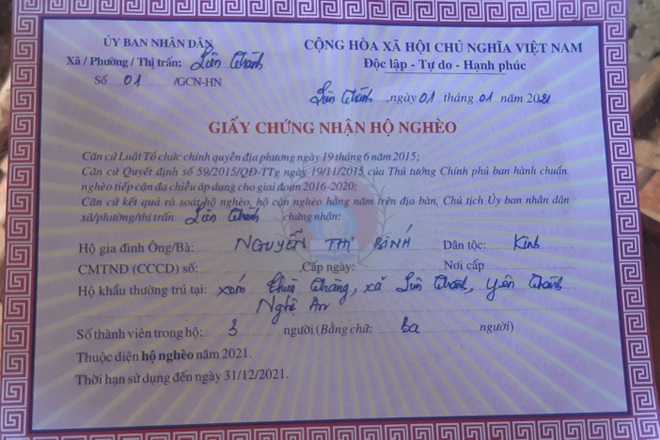 ỦY BAN NHÂN DÂN
Xã / Phường / Thị trấn: Liên Thành
Số 01 /GCN-HN
CỘNG HÒA XÃ HỘI CHỦ NGHĨA VIỆT NAM
Độc lập - Tự do - Hạnh phúc
Liên Thành, ngày 01 tháng 01 năm 2021
GIẤY CHỨNG NHẬN HỘ NGHÈO
Căn cứ Luật Tổ chức chính quyền địa phương ngày 19 tháng 6 năm 2015;
Căn cứ Quyết định số 59/2015/QĐ-TTg ngày 19/11/2015 của Thủ tướng Chính phủ ban hành chuẩn
nghèo tiếp cận đa chiều áp dụng cho giai đoạn 2016-2020;
Căn cứ kết quả rà soát hộ nghèo, hộ cận nghèo hằng năm trên địa bàn, Chủ tịch Ủy ban nhân dân
xã/phường/thị trấn Liên Thành chứng nhận:
Hộ gia đình Ông/Bà: NGUYỄN THỊ BÍNH Dân tộc: Kinh
CMTND (CCCD) số: Cấp ngày: Nơi cấp
Hộ khẩu thường trú tại: xóm Thăng, xã Liên Thành, Yên Thành
Nghệ An
Số thành viên trong hộ: 3 người (Bằng chữ: ba người)
Thuộc diện hộ nghèo năm 2021.
Thời hạn sử dụng đến ngày 31/12/2021.